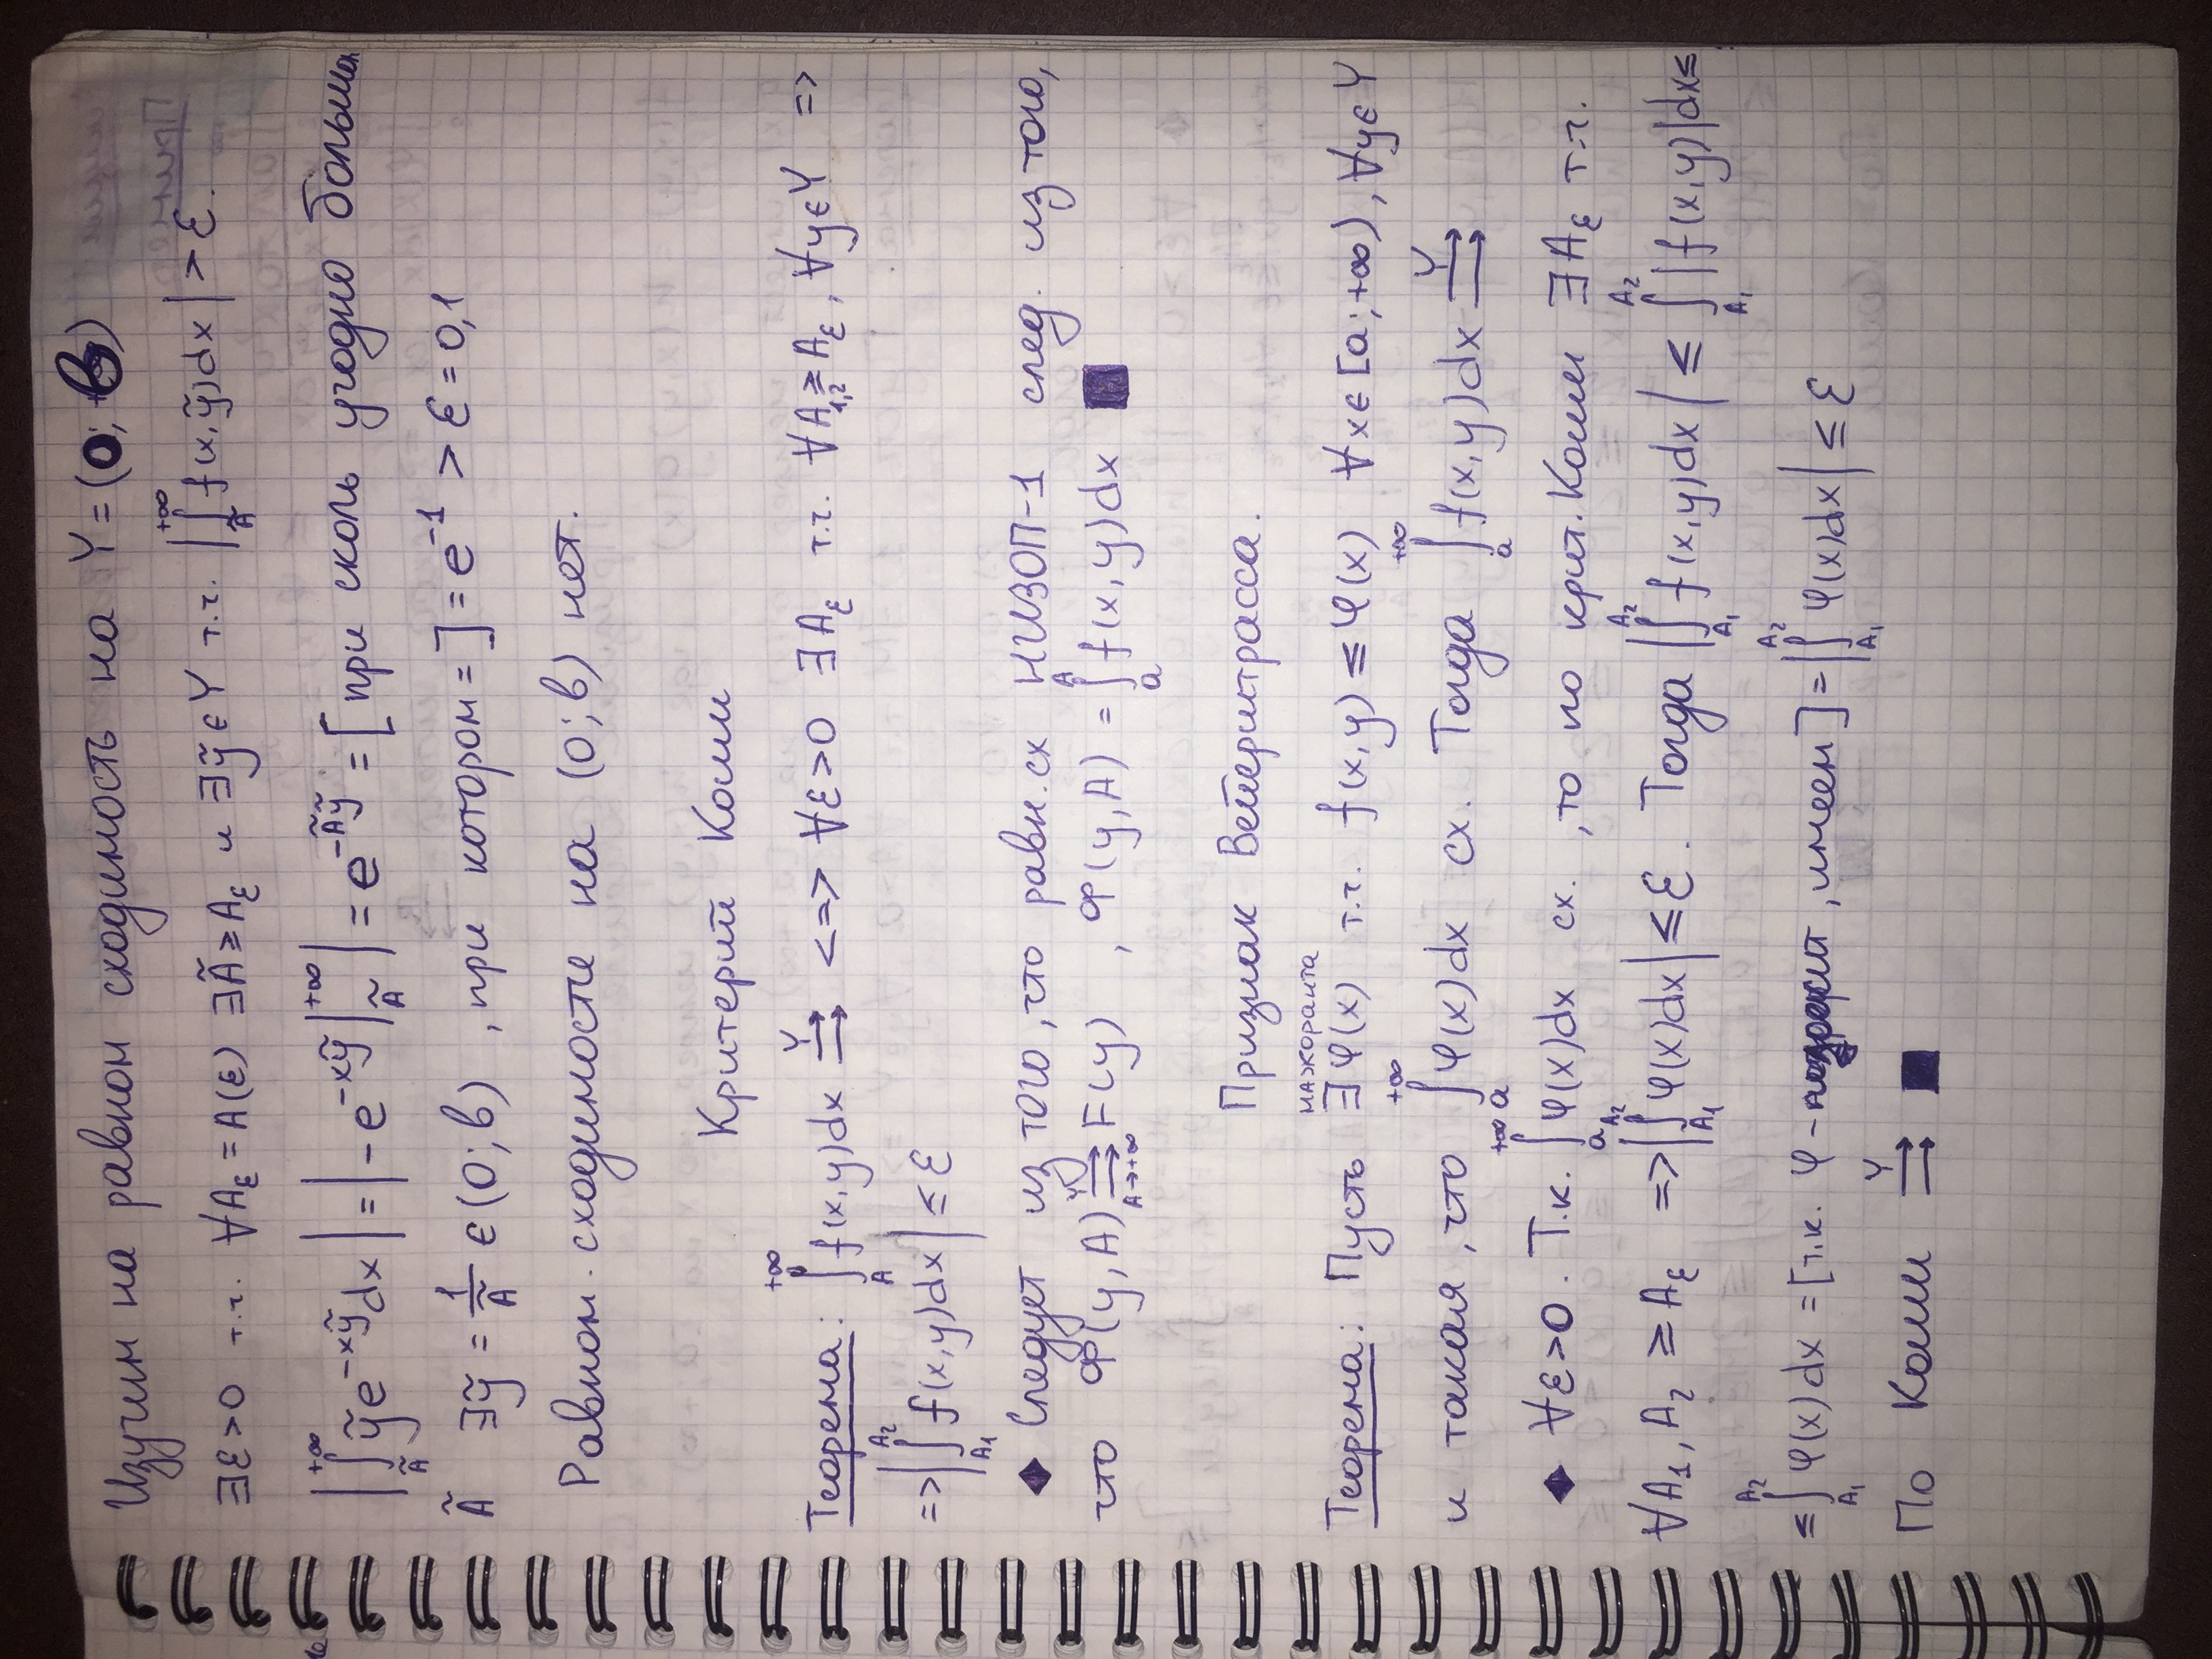 Изучим на равном сходимость на Y = (0; в)
∃ε>0 т.ч. ∀A_ε = A(ε) ∃Ã ≥ A_ε и ∃ỹ ∈ Y т.ч. |∫_Ã^{+∞} f(x,ỹ)dx| > ε.
|∫_Ã^{+∞} ỹe^{-xỹ}dx| = |-e^{-xỹ}|_Ã^{+∞}| = e^{-Ãỹ} = [при сколь угодно большом
Ã ∃ỹ = 1/Ã ∈ (0; в), при котором = ] = e^{-1} > ε = 0,1
Равном. сходимости на (0; в) нет.
Критерий Коши
Теорема: ∫_A^{+∞} f(x,y)dx ⇉^Y <=> ∀ε>0 ∃A_ε т.ч. ∀A_{1,2} ≥ A_ε, ∀y∈Y =>
=> |∫_{A₁}^{A₂} f(x,y)dx| ≤ ε
◆ Следует из того, что равн. сх НИЗОП-1 след. из того,
что Φ(y,A) ⇉^Y_{A→+∞} F(y), Φ(y,A) = ∫_a^A f(x,y)dx ■
Признак Вейерштрасса.
мажоранта
Теорема: Пусть ∃φ(x) т.ч. f(x,y) ≤ φ(x) ∀x∈[a;+∞), ∀y∈Y
и такая, что ∫_a^{+∞} φ(x)dx сх. Тогда ∫_a^{+∞} f(x,y)dx ⇉^Y
◆ ∀ε>0. Т.к. ∫_a^{+∞} φ(x)dx сх., то по крит. Коши ∃A_ε т.ч.
∀A₁, A₂ ≥ A_ε => |∫_{A₁}^{A₂} φ(x)dx| ≤ ε. Тогда |∫_{A₁}^{A₂} f(x,y)dx| ≤ ∫_{A₁}^{A₂} |f(x,y)|dx ≤
≤ ∫_{A₁}^{A₂} φ(x)dx = [т.к. φ - , имеем] = |∫_{A₁}^{A₂} φ(x)dx| ≤ ε
По Коши ⇉^Y ■